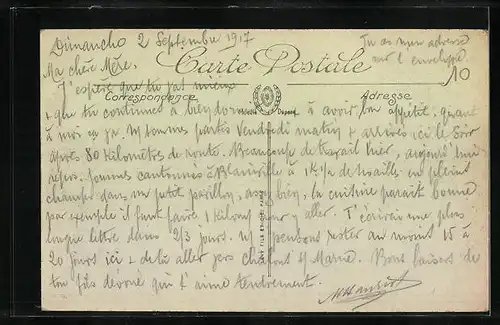 Dimanche 2 Septembre 1917
Tu as mon adresse
sur l'enveloppe
Ma chère Mère.
Carte Postale
10
J'espère que tu vas mieux
Correspondance
Adresse
+ que tu continues à bien dormir + à avoir bon appétit, quant
à moi ça va. Ns sommes partis Vendredi matin + arrivés ici le Soir
après 80 kilomètres de route. Beaucoup de travail hier, aujourd'hui
repos. Sommes cantonnés à Blainville à 1 K
champs dans un petit pavillon, assez bien, la cuisine parait bonne
par exemple il faut faire 1 kilom pour y aller. T'écrirai une plus
longue lettre dans 2/3 jours. Ns pensons rester au moins 15 à
20 jours ici + de là aller vers Chalons s/ Marne. Bons baisers de
ton fils dévoué qui t'aime tendrement.